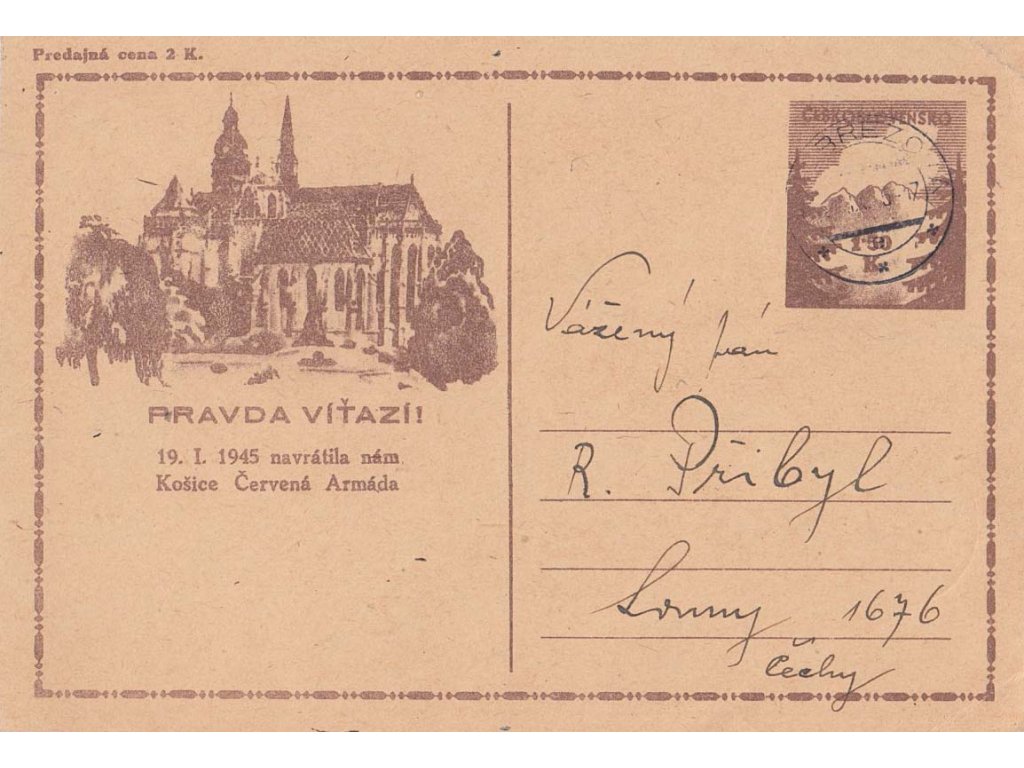 Predajná cena 2 K.
ČESKOSLOVENSKO
BREZOVA
1'50
K
PRAVDA VÍŤAZÍ!
19. I. 1945 navrátila nám
Košice Červená Armáda
Vážený pán
R. Přibyl
Louny 1676
Čechy